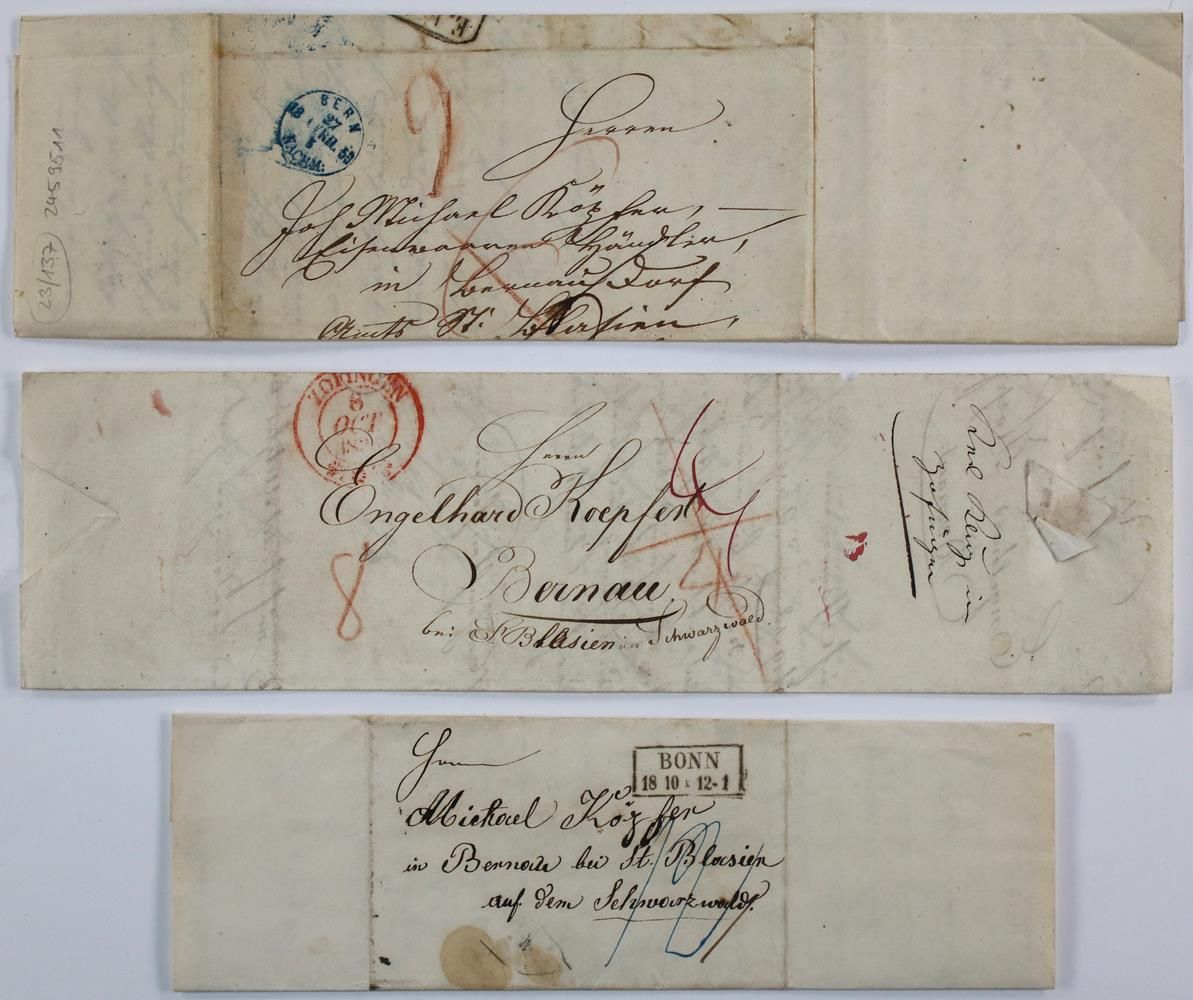 23/137 2459511
BERN
27
18 APRIL 53
NACHM:
9
Herren
Joh Michael Köpfer, —
Eisenwaaren Händler,
in Bernau Dorf
Amts St. Blasien,
ZOFINGEN
8
OCT
Herrn
Engelhard Koepfer
Bernau.
bei St Blasien im Schwarzwald.
8
4
in
Zofingen
BONN
18 10 12-1
Herrn
Michael Köpfer
in Bernau bei St. Blasien
auf dem Schwarzwald.
4.